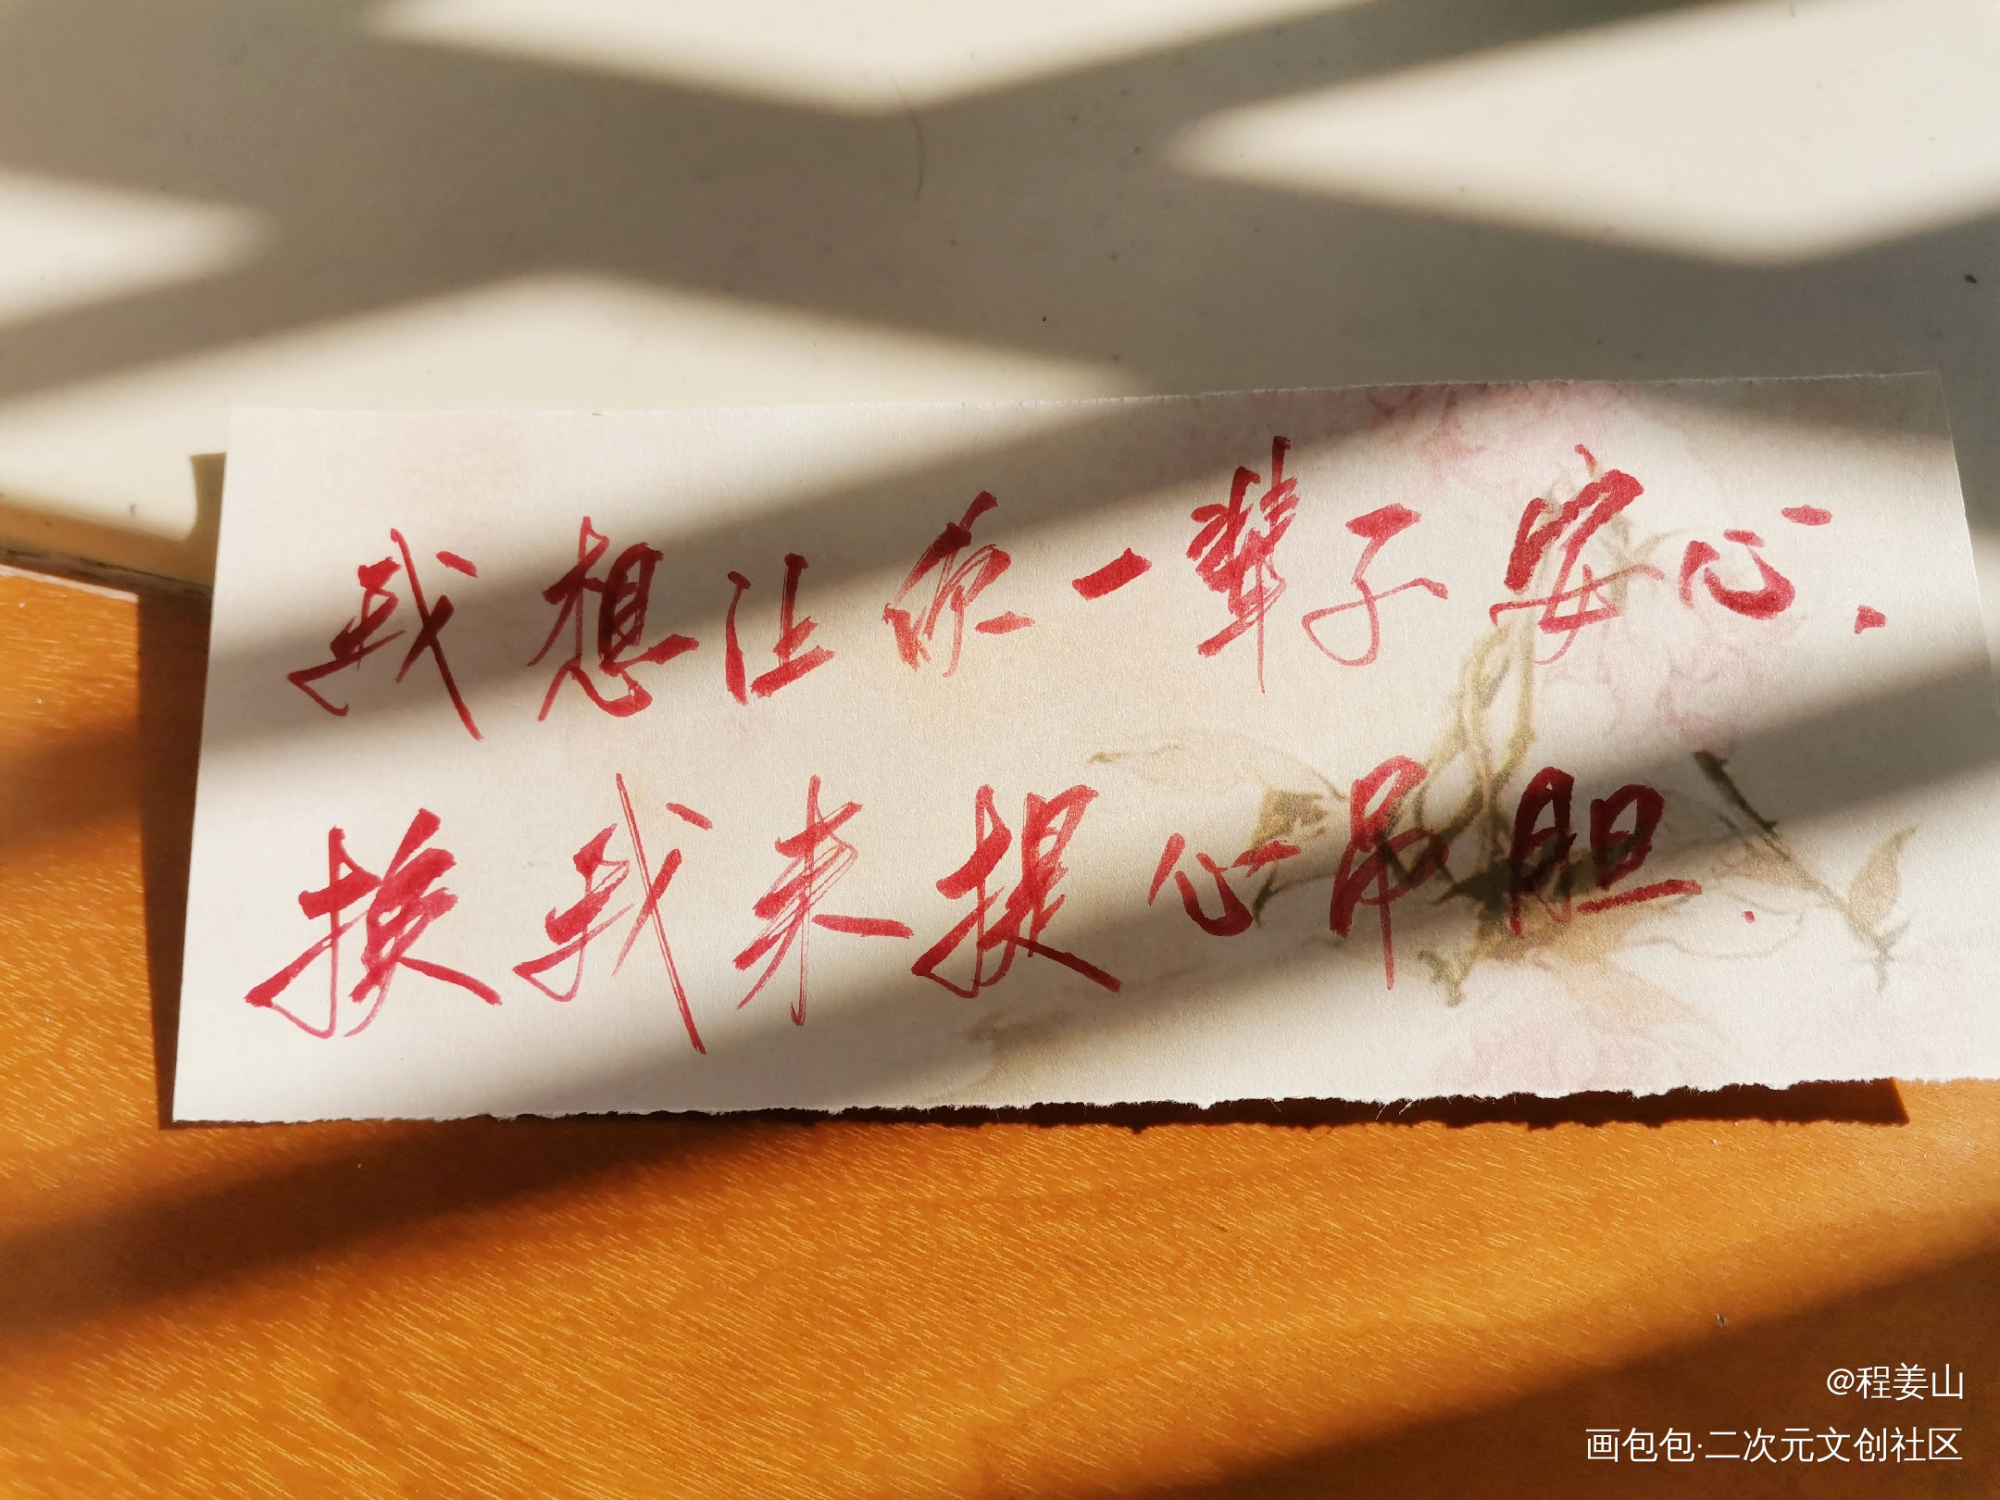 我想让你一辈子安心.
换我来提心吊胆.
@程姜山
画包包·二次元文创社区